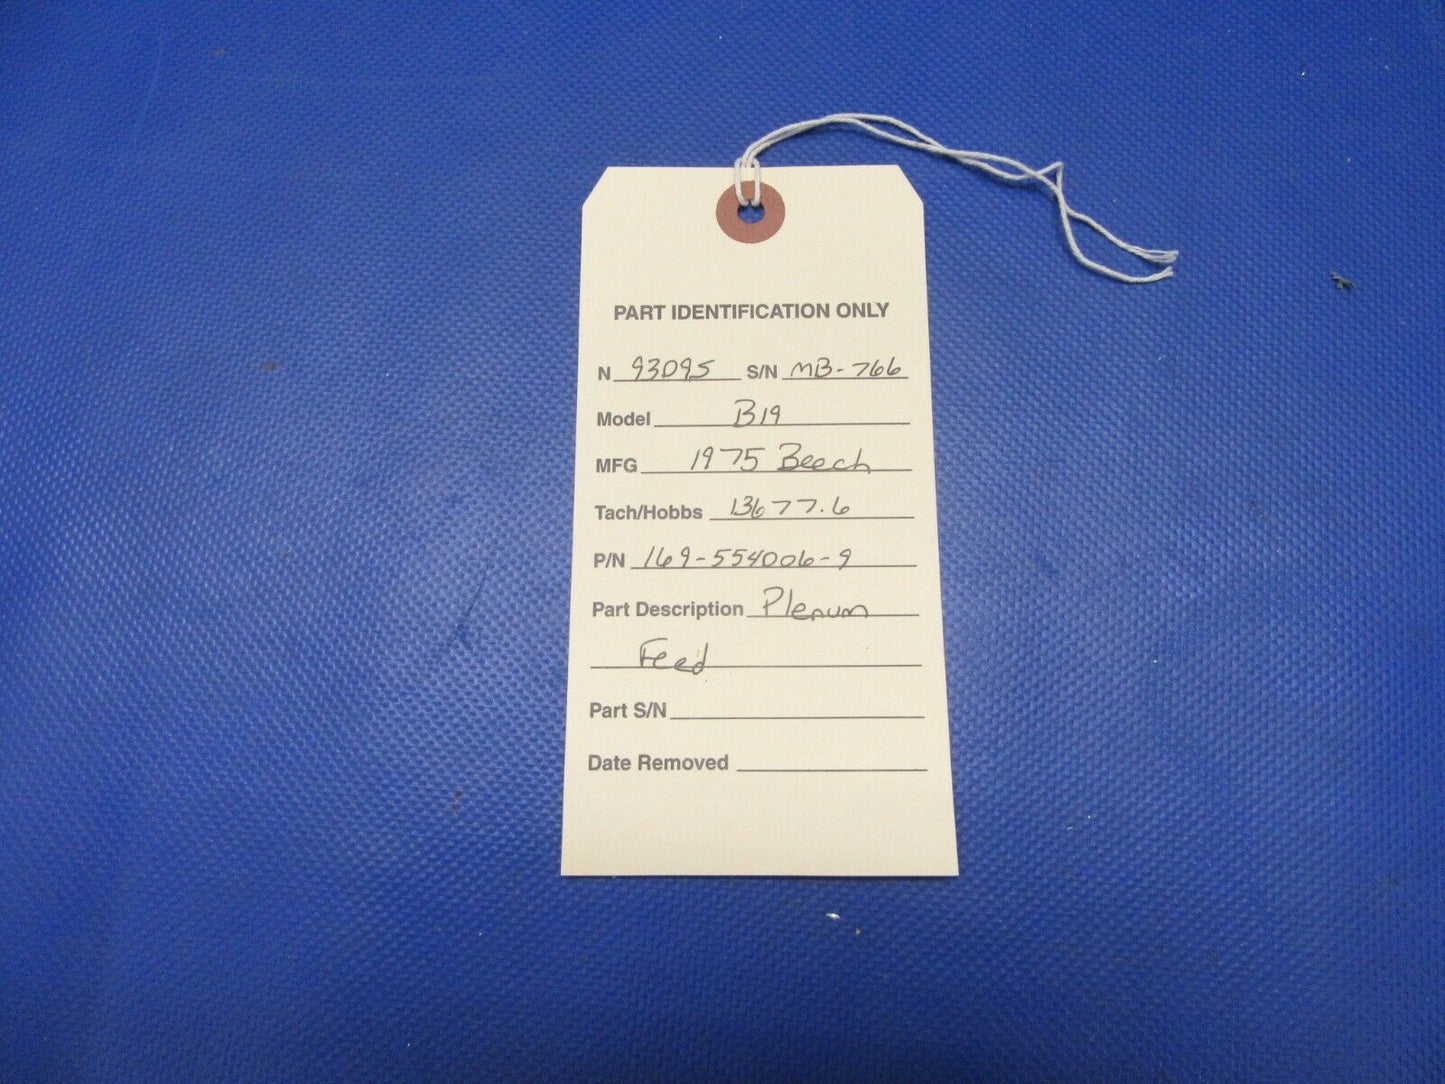 PART IDENTIFICATION ONLY
N 93095 S/N MB-766
Model B19
MFG 1975 Beech
Tach/Hobbs 13677.6
P/N 169-554006-9
Part Description Plenum
Feed
Part S/N
Date Removed